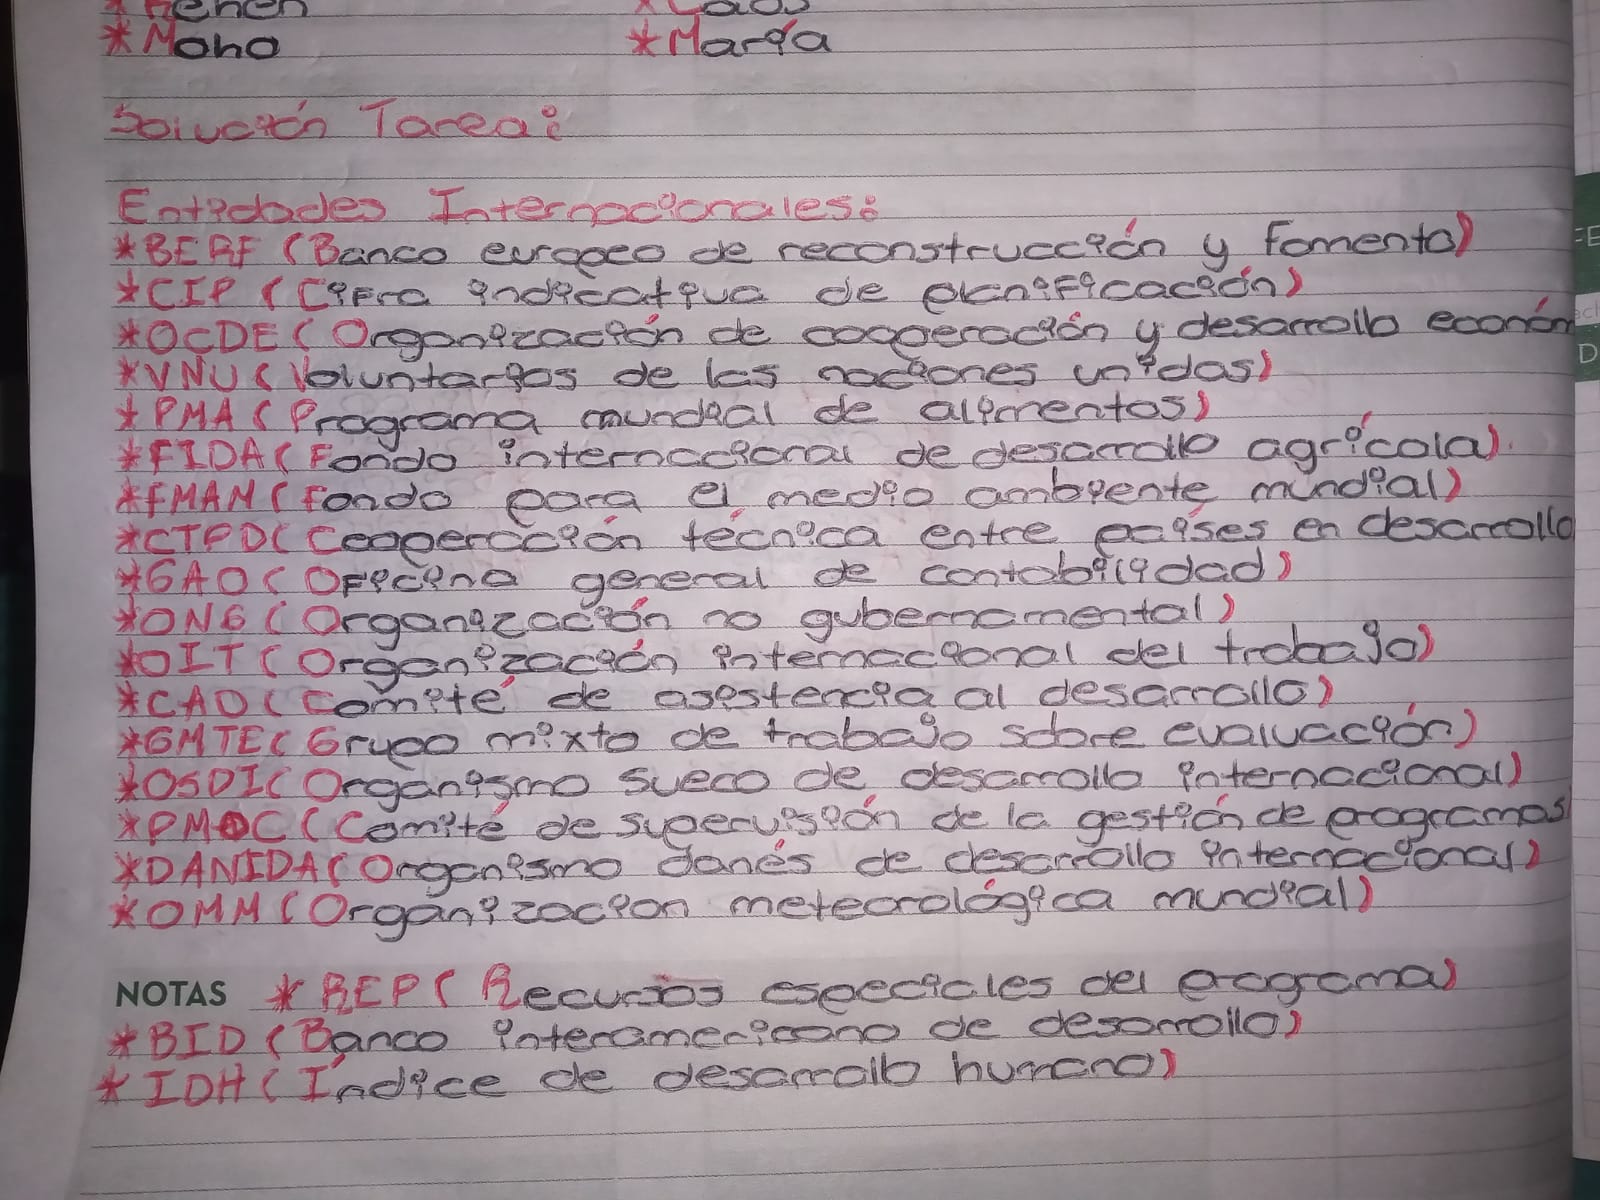 *Moho *María
Solución Tarea:
Entidades Internacionales:
*BERF (Banco europeo de reconstrucción y fomento)
*CIP (Cifra indicativa de planificación)
*OCDE (Organización de cooperación y desarrollo económ
*VNU (Voluntarios de las naciones unidas)
*PMA (Programa mundial de alimentos)
*FIDA (Fondo internacional de desarrollo agrícola).
*FMAM (Fondo para el medio ambiente mundial)
*CTPD (Cooperación técnica entre países en desarrollo
*GAO (Oficina general de contabilidad)
*ONG (Organización no gubernamental)
*OIT (Organización internacional del trabajo)
*CAD (Comité de asistencia al desarrollo)
*GMTE (Grupo mixto de trabajo sobre evaluación)
*OSDI (Organismo sueco de desarrollo internacional)
*PMOC (Comité de supervisión de la gestión de programas
*DANIDA (Organismo danés de desarrollo internacional)
*OMM (Organización meteorológica mundial)
NOTAS *REP (Recursos especiales del programa)
*BID (Banco interamericano de desarrollo)
*IDH (Índice de desarrollo humano)